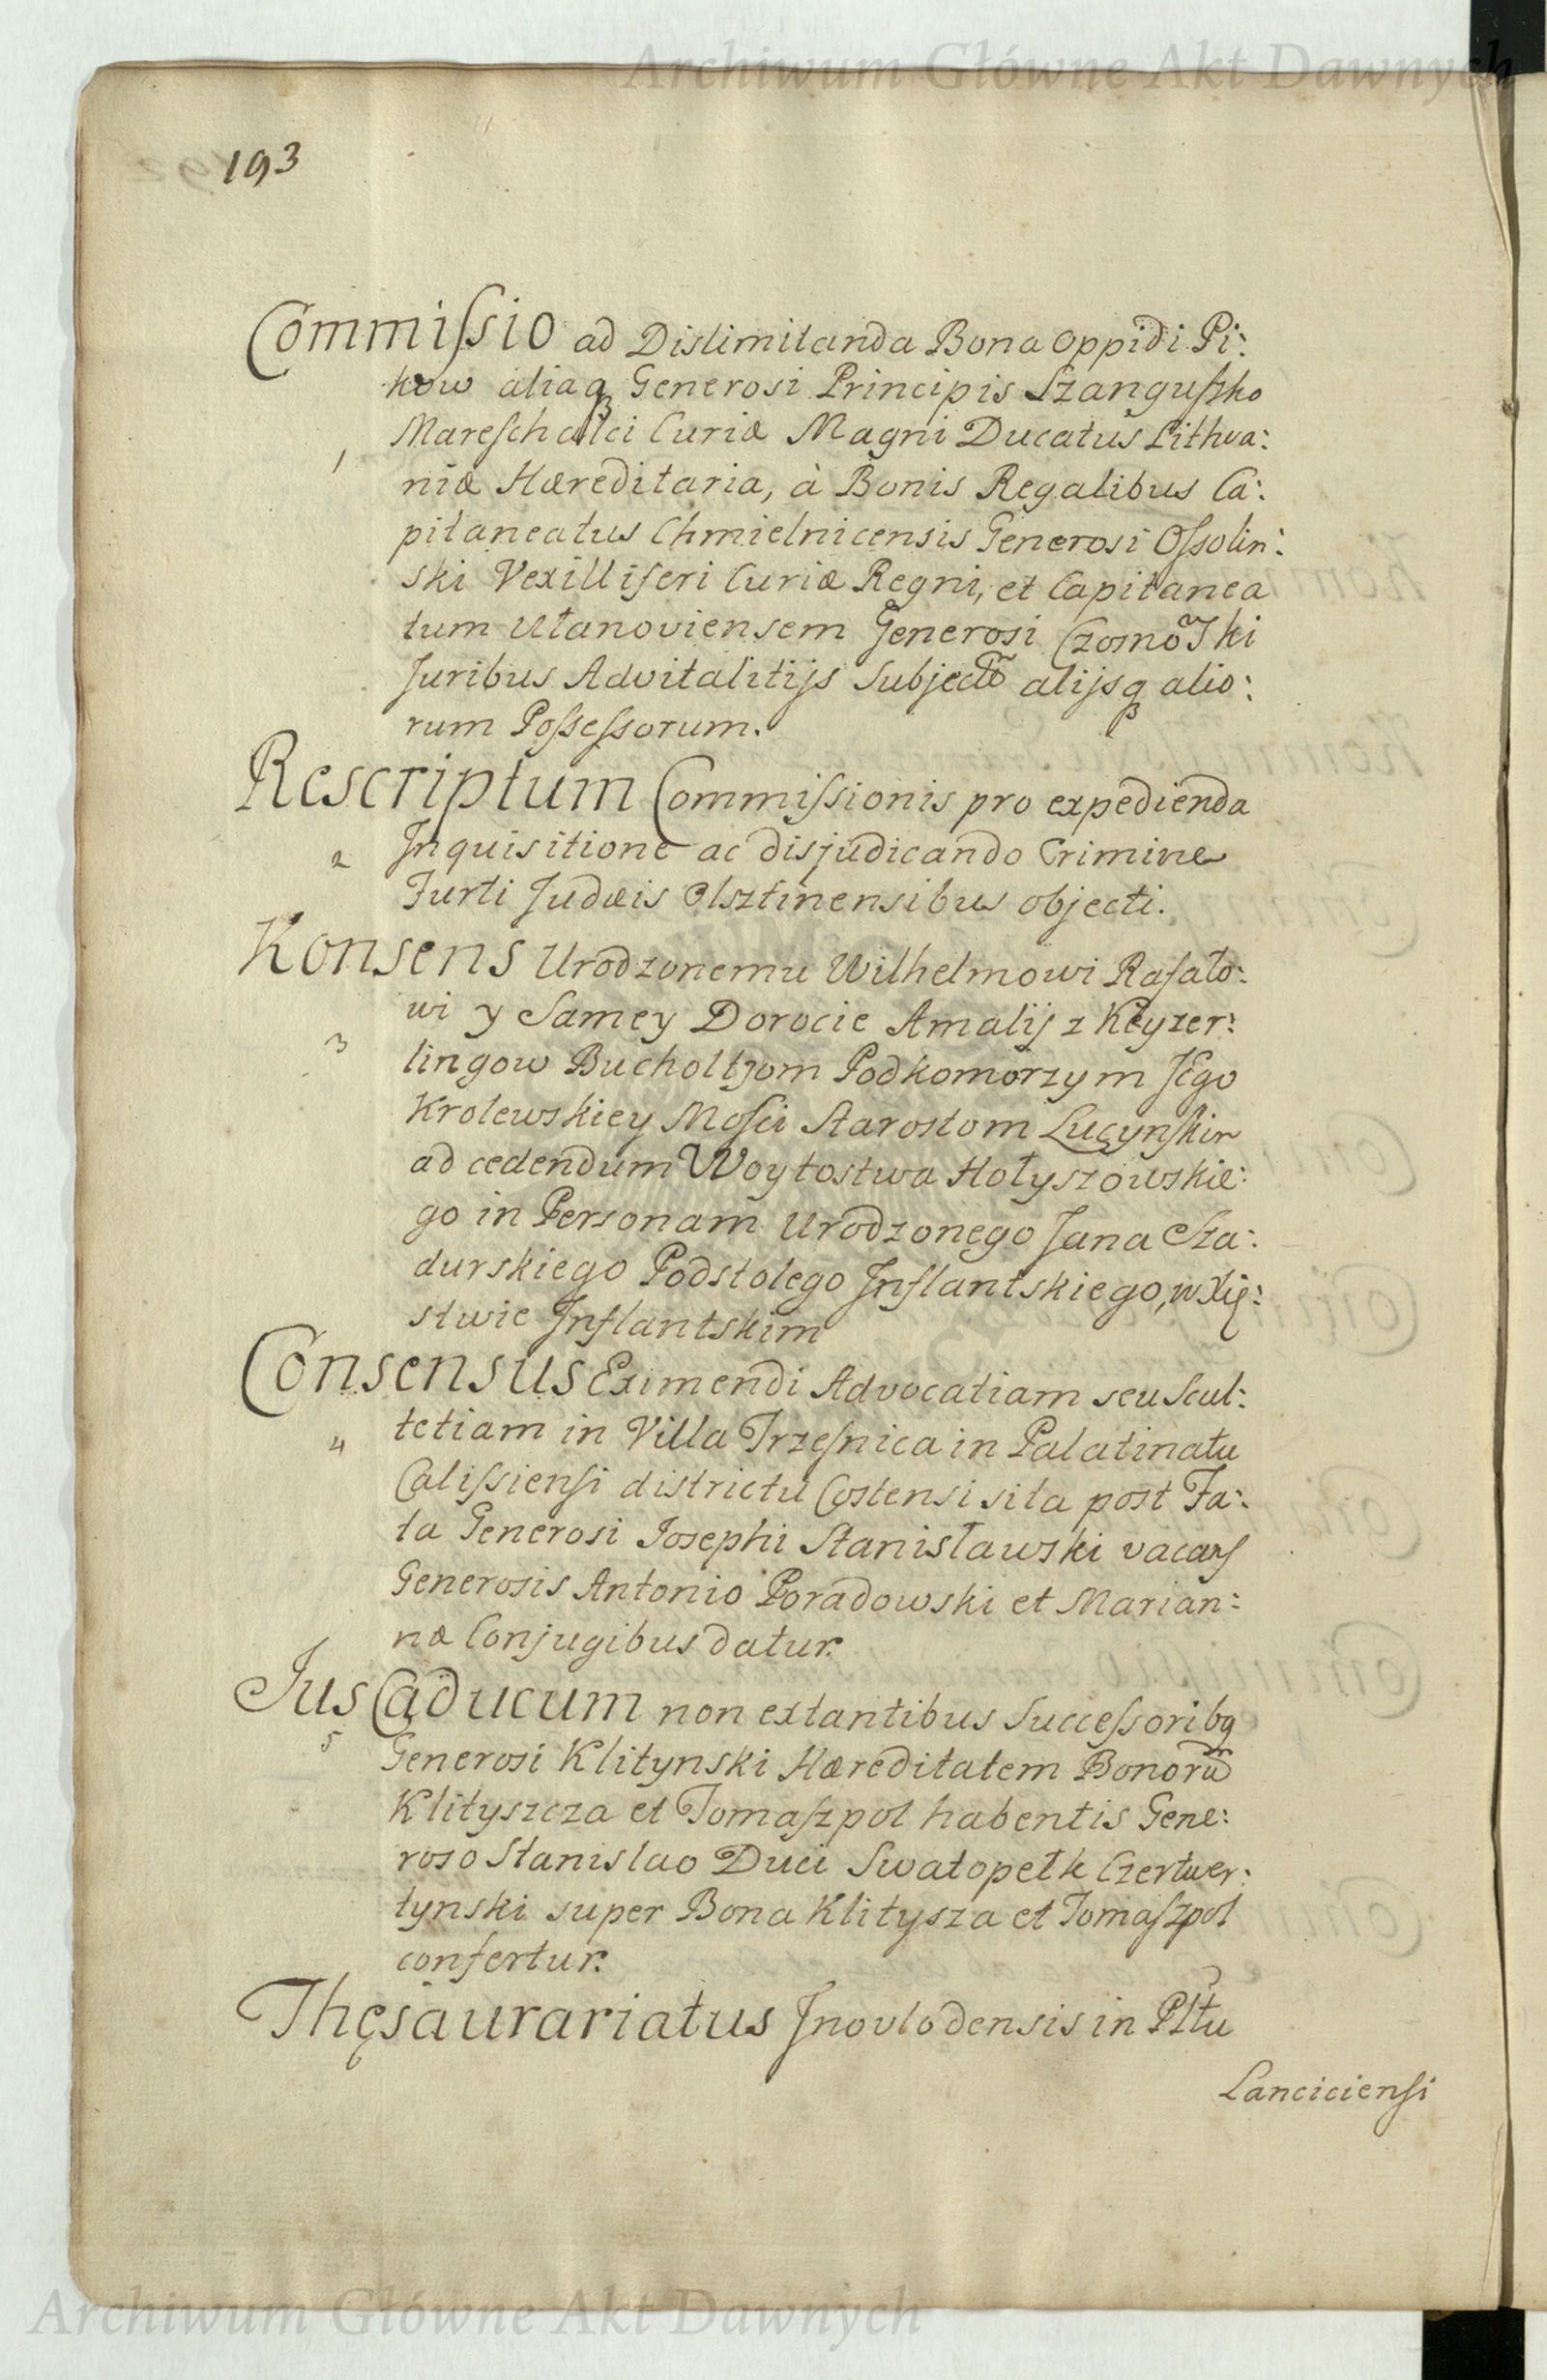 Archiwum Główne Akt Dawnych
193
Commiſsio ad Dislimitanda Bona Oppidi Pi:
kow aliaqꝫ Generosi Principis Szanguſzko
Mareſchalci Curiæ Magni Ducatus Lithva:
1
niæ Hæreditaria, à Bonis Regalibus Ca:
pitaneatus Chmielnicensis Generosi Oſsolin:
ski Vexilliferi Curiæ Regni, et Capitanea
tum Ułanoviensem Generosi Czosnowski
Juribus Advitalitijs Subjectõ alijsqꝫ alio:
rum Poſseſsorum.
Rescriptum Commiſsionis pro expedienda
2 Inquisitione ac disjudicando Crimine
Furti Judæis Olsztinensibus objecti.
Konsens Urodzonemu Wilhelmowi Rafało:
wi y Samey Dorocie Amalij z Keyzer:
3
lingow Bucholtzom Podkomorzym Jego
Krolewskiey Mości Starostom Lucynſkim
ad cedendum Woytostwa Hołyszowskie:
go in Personam Urodzonego Jana Sza:
durskiego Podstolego Inflantskiego, w Xię:
stwie Inflantskim
Consensus Eximendi Advocatiam seu Scul:
4 tetiam in Villa Trzeſnica in Palatinatu
Caliſsienſi districtu Costensi sita post Fa:
ta Generosi Josephi Stanisławski vacans
Generosis Antonio Poradowski et Marian:
næ Conjugibus datur.
Jus Caducum non extantibus Succeſsoribq
5
Generosi Klitynski Hæreditatem Bonorũ
Klityszcza et Tomaſzpol habentis Gene:
roso Stanislao Duci Swatopełk Czertwer:
tynski super Bona Klitysza et Tomaſzpol
confertur.
Thesaurariatus Inovlodensis in Pltu
6
Lancicienſi
Archiwum Główne Akt Dawnych